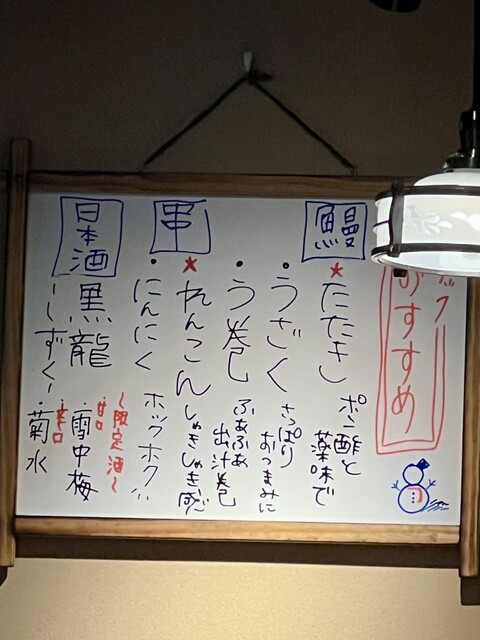 おすすめ
鰻
★たたき ポン酢と
薬味で
・うざく さっぱり
おつまみに
・う巻 ふあふあ
出汁巻
串
★れんこん しゃきしゃき感
・にんにく ホックホク!!
日本酒
〜限定酒〜
黒龍 甘口・雪中梅
〜しずく〜 辛口・菊水